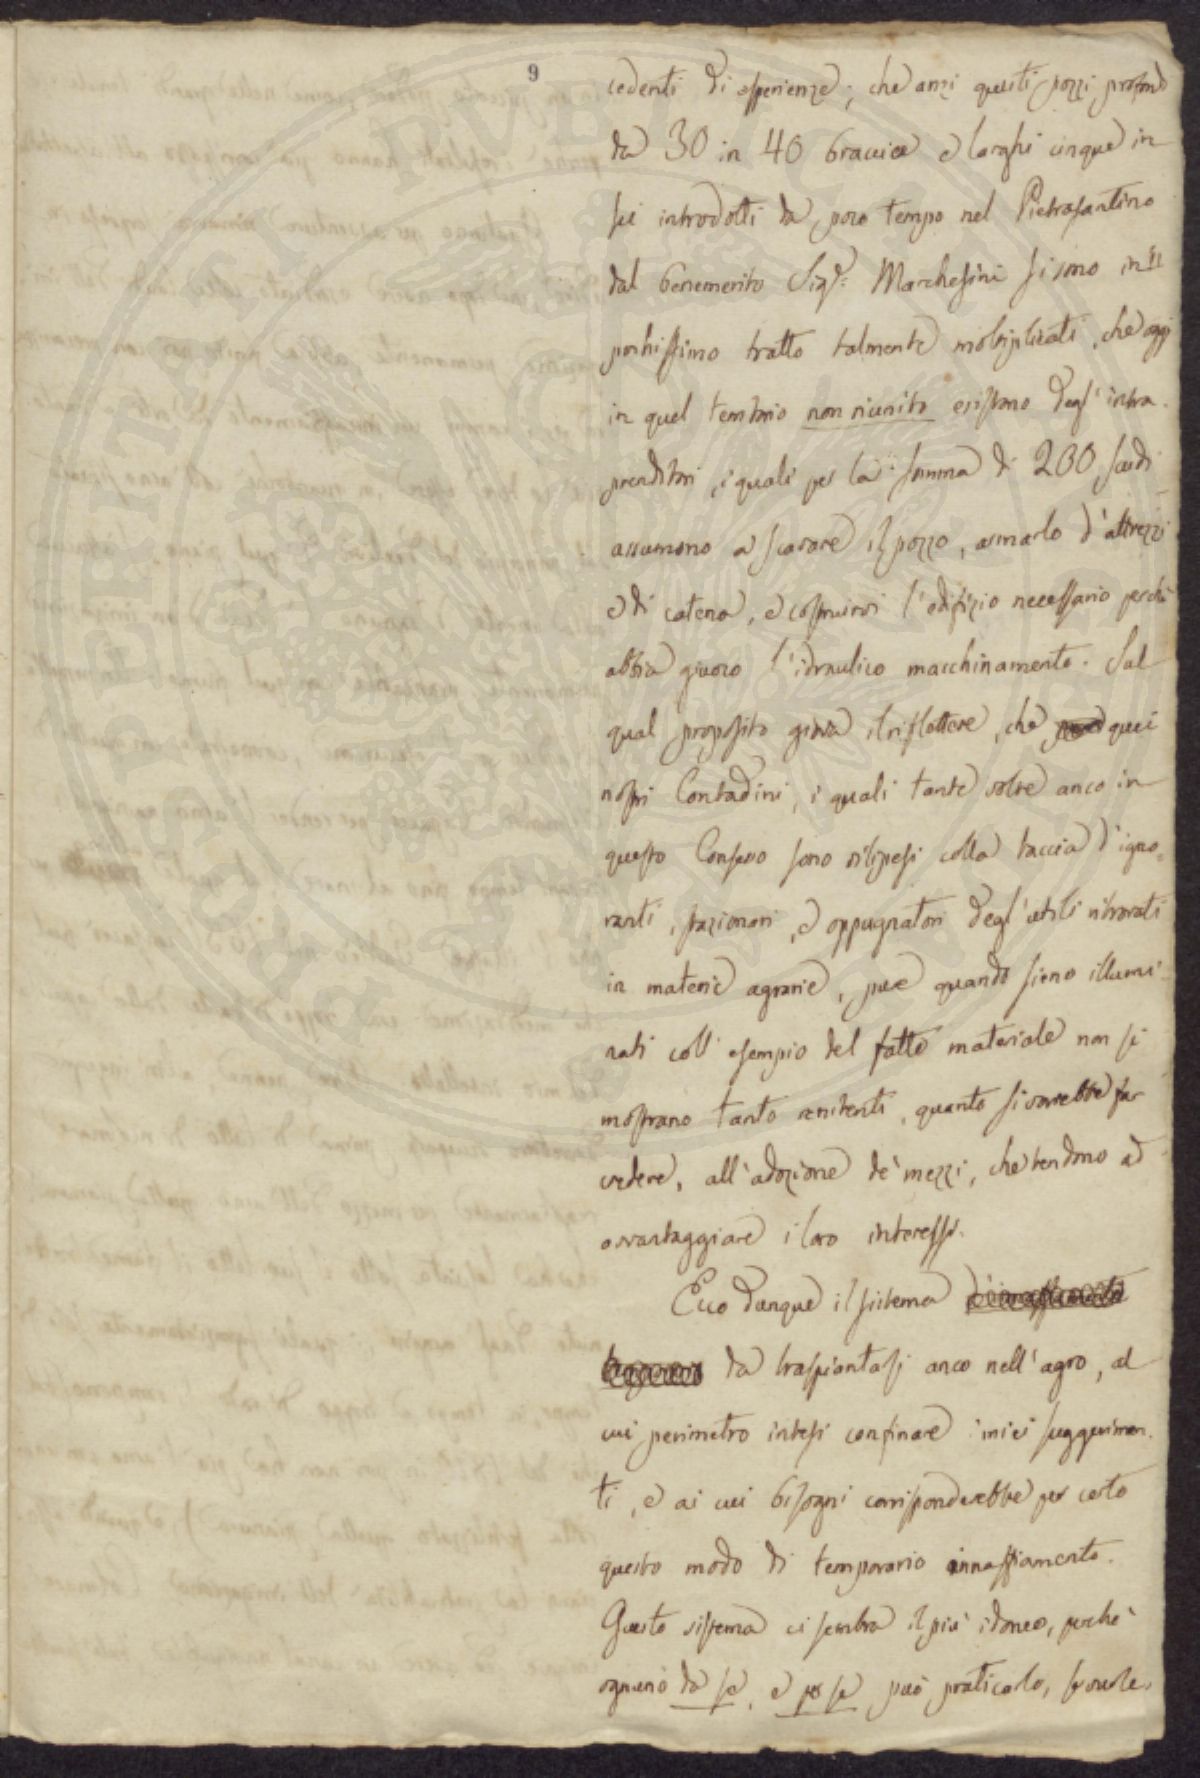 9
cedenti di esperienze; che anzi questi pozzi profondi
da 30 in 40 braccia e larghi cinque in
sei introdotti da poco tempo nel Pietrasantino
dal benemerito Sigr. Marchesini si sono in
pochissimo tratto talmente moltiplicati, che oggi
in quel territorio non riunito esistono degl'intra-
prenditori, i quali per la somma di 200 scudi
assumono a scavare il pozzo, armarlo d'attrezzi
e di catena, e costruirvi l'edifizio necessario perchè
abbia giuoco l'idraulico macchinamento. Sul
qual proposito giova il riflettere, che quei
nostri Contadini, i quali tante volte anco in
questo Consesso sono vilipesi colla taccia d'igno=
ranti, stazionari, e oppugnatori degl'utili ritrovati
in materie agrarie, pure quando sieno illumi-
nati coll'esempio del fatto materiale non si
mostrano tanto renitenti, quanto si vorrebbe far
credere, all'adozione de' mezzi, che tendono ad
avvantaggiare i loro interessi.
Ecco dunque il sistema
da traspiantasi anco nell'agro, al
cui perimetro intesi confinare i miei suggerimen-
ti, e ai cui bisogni corrisponderebbe per certo
questo modo di temporario innaffiamento.
Questo sistema ci sembra il più idoneo, perchè
ognuno da se, e per se può praticarlo, se vuole,